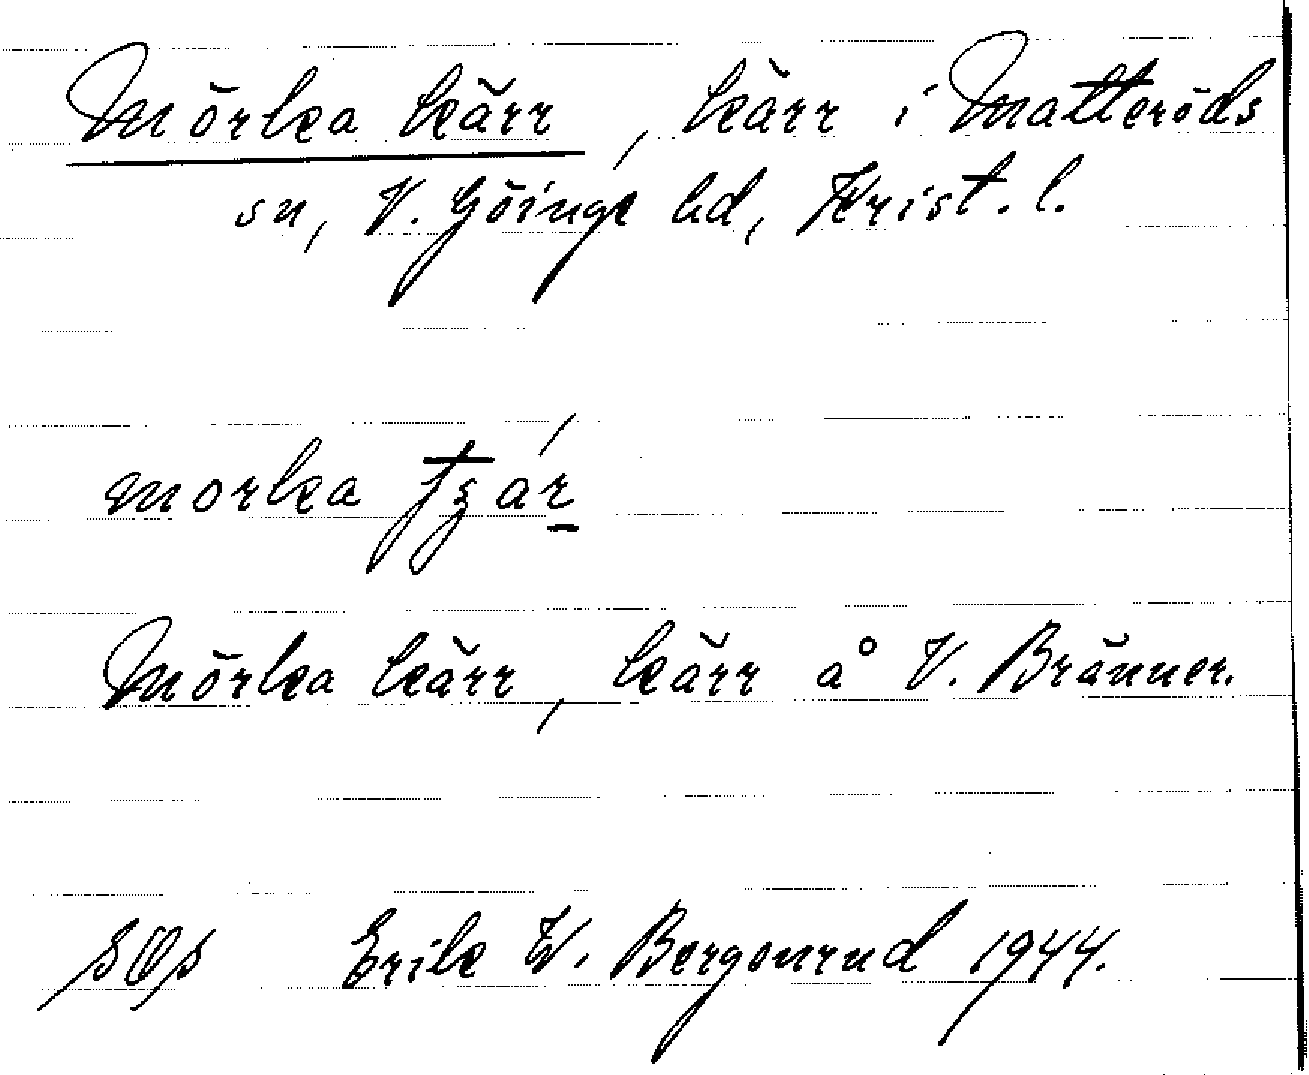 Mörka kärr, kärr i Matteröds
sn, V. Göinge hd, Krist. l.
morka
Mörka kärr, kärr å V. Bränner.
Erik W. Bergonrud 1944.